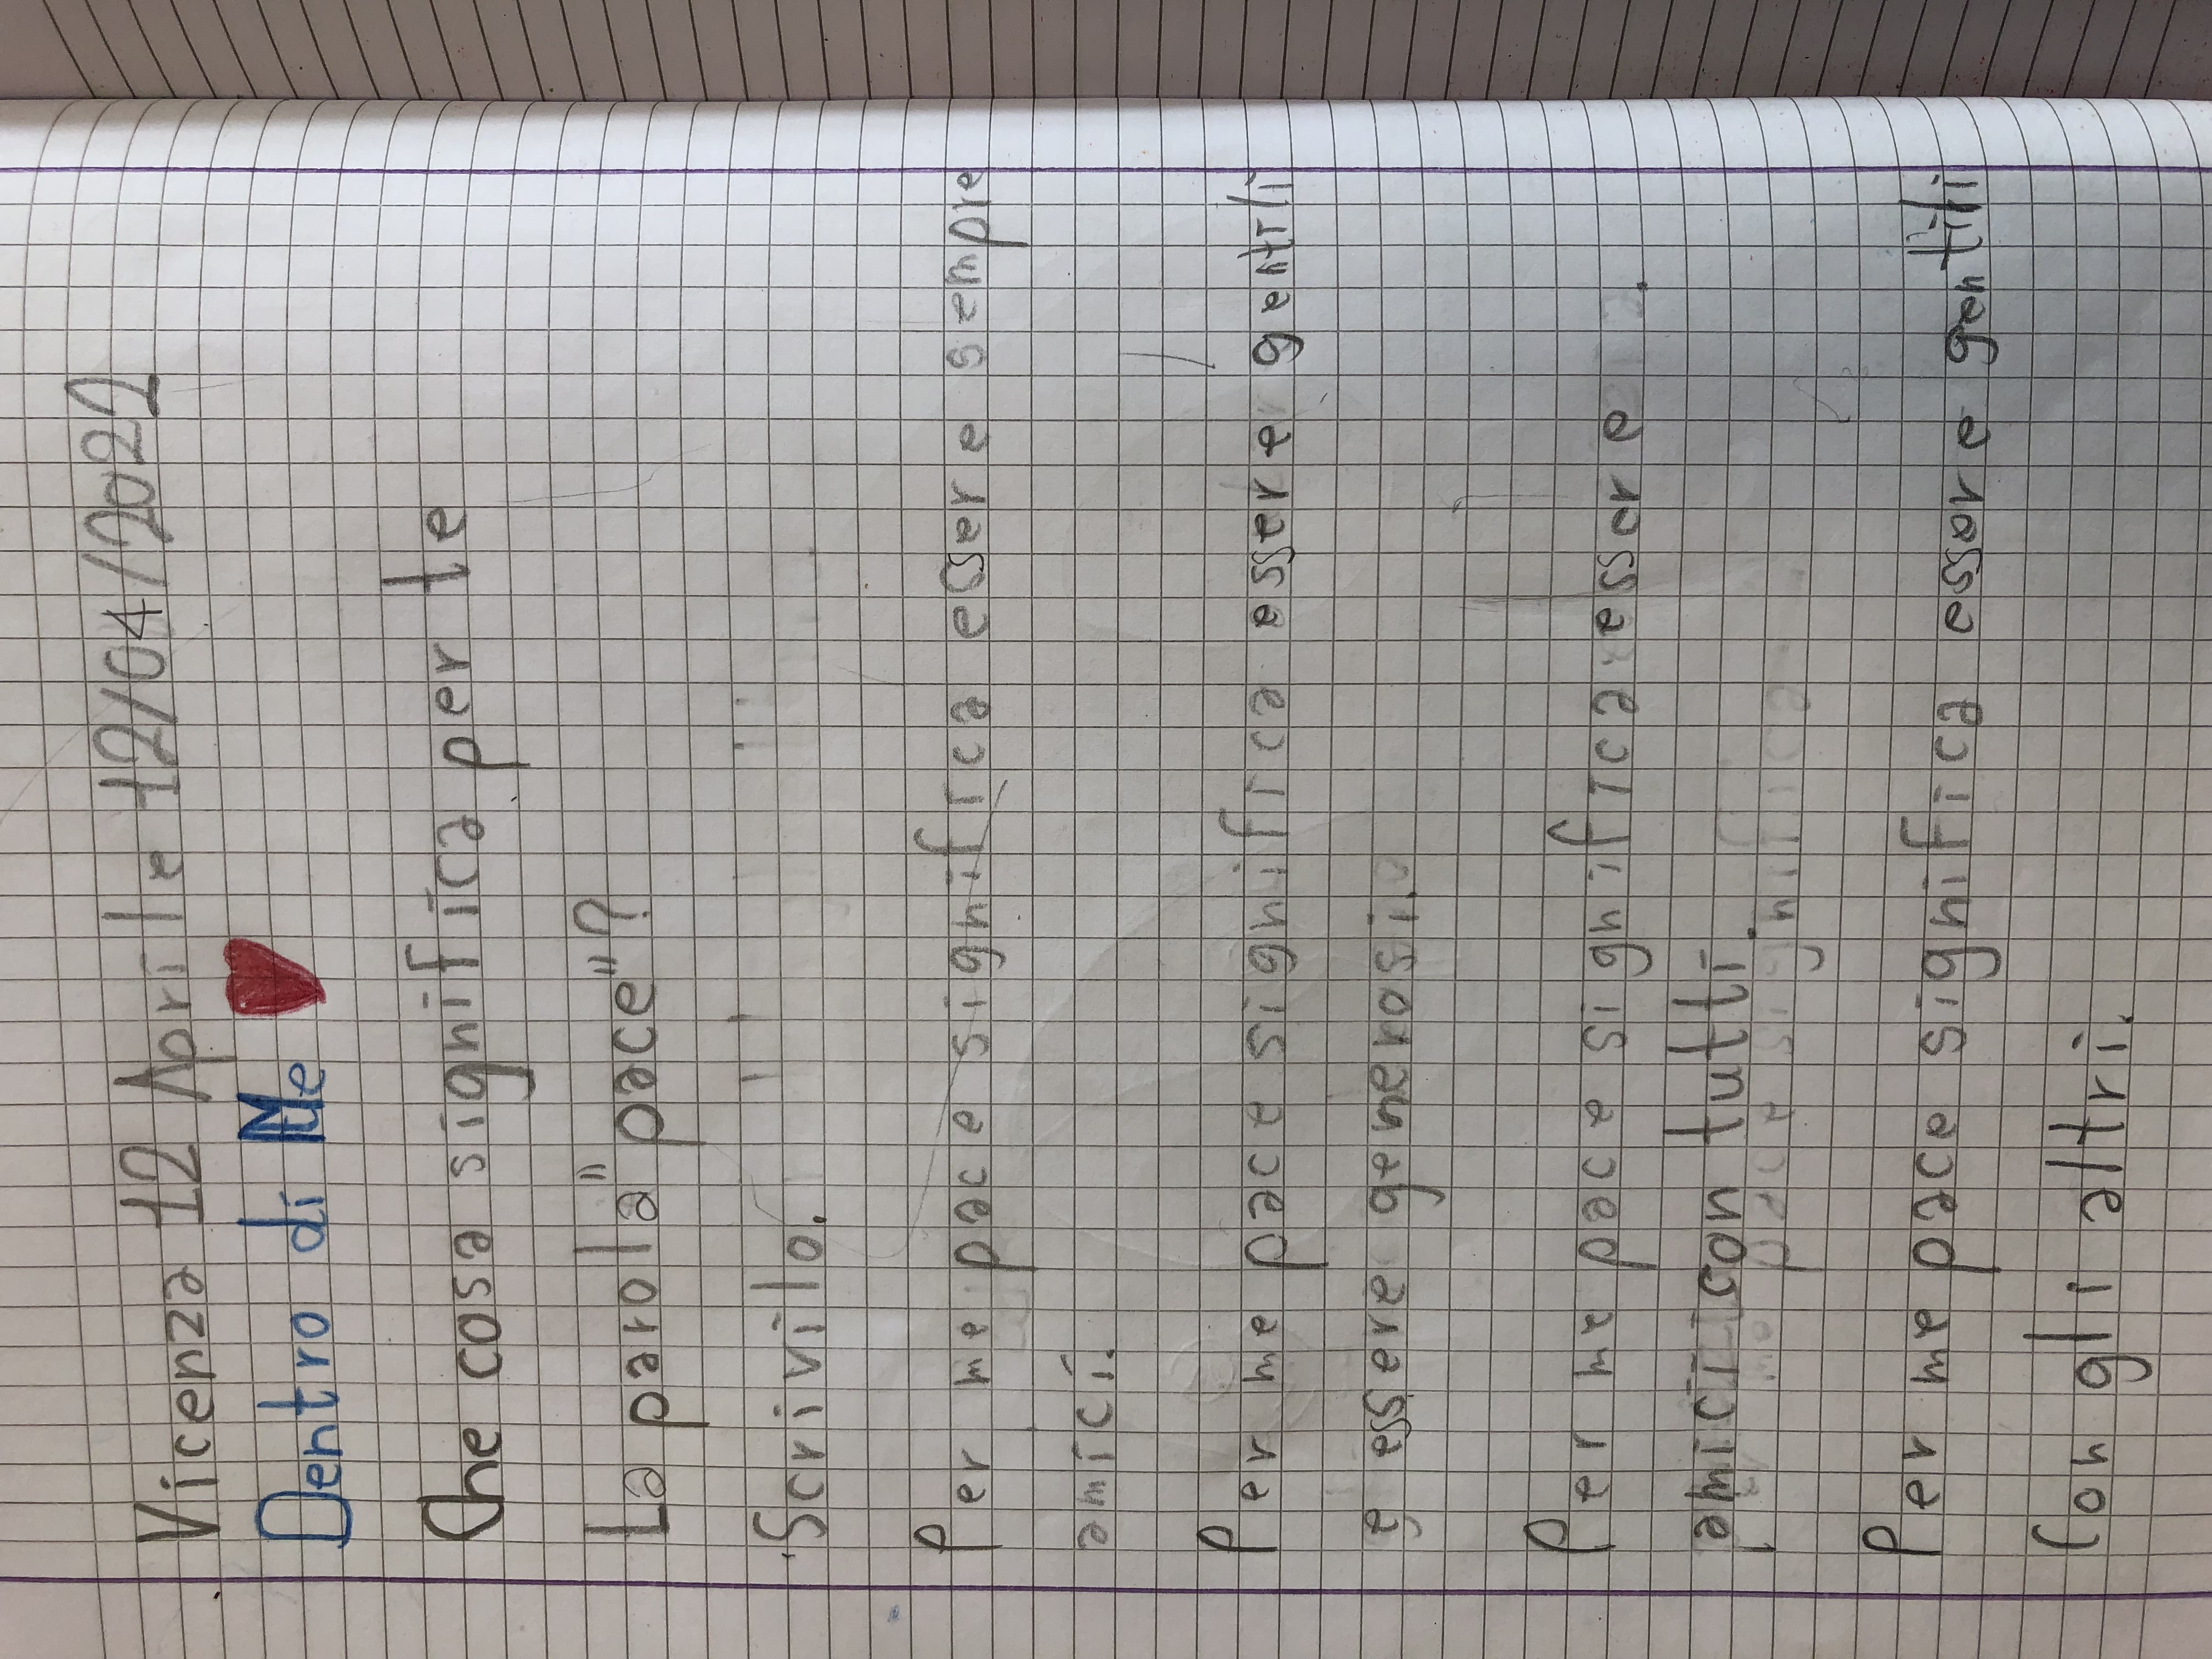 Vicenza 12 Aprile 12/04/2022
Dentro di Me
Che cosa significa per te
La parola "pace"?
Scrivilo.
Per me pace significa essere sempre
amici.
Per me pace significa essere gentili
e essere generosi.
Per me pace significa essere
amici con tutti.
Per me pace significa essere gentili
Con gli altri.